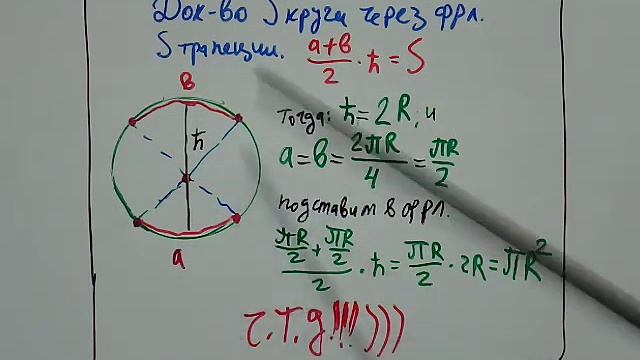 Док-во S круга через фрл.
S трапеции. (a+b)/2 · h = S
b
h
a
Тогда: h = 2R, и
a = b = 2πR/4 = πR/2
подставим в фрл.
(πR/2 + πR/2)/2 · h = πR/2 · 2R = πR²
Ч.Т.Д!!!)))